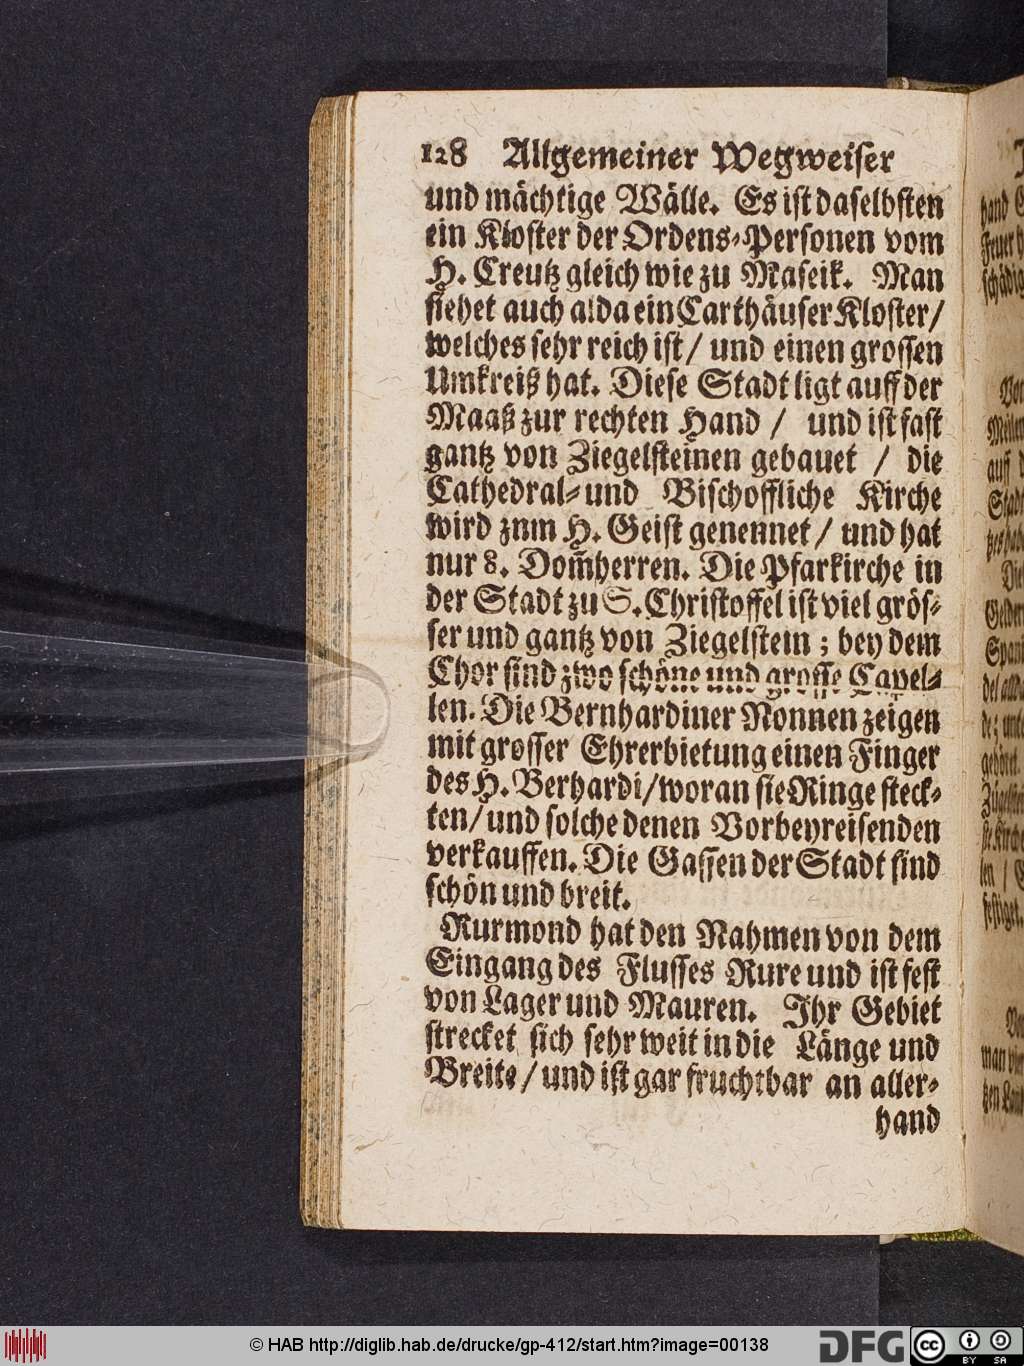 128 Allgemeiner Wegweiser
und mächtige Wälle. Es ist daselbsten
ein Kloster der Ordens-Personen vom
H. Creutz gleich wie zu Maseik. Man
siehet auch alda ein Carthäuser Kloster/
welches sehr reich ist/ und einen grossen
Umkreiß hat. Diese Stadt ligt auff der
Maaß zur rechten Hand / und ist fast
gantz von Ziegelsteinen gebauet / die
Cathedral- und Bischoffliche Kirche
wird znm H. Geist genennet / und hat
nur 8. Dom̃herren. Die Pfarkirche in
der Stadt zu S. Christoffel ist viel grös-
ser und gantz von Ziegelstein ; bey dem
Chor sind zwo schöne und grosse Capel-
len. Die Bernhardiner Nonnen zeigen
mit grosser Ehrerbietung einen Finger
des H. Berhardi/ woran sie Ringe steck-
ten/ und solche denen Vorbeyreisenden
verkauffen. Die Gassen der Stadt sind
schön und breit.
Rurmond hat den Nahmen von dem
Eingang des Flusses Rure und ist fest
von Lager und Mauren. Ihr Gebiet
strecket sich sehr weit in die Länge und
Breite / und ist gar fruchtbar an aller-
hand
© HAB http://diglib.hab.de/drucke/gp-412/start.htm?image=00138
DFG
cc BY SA